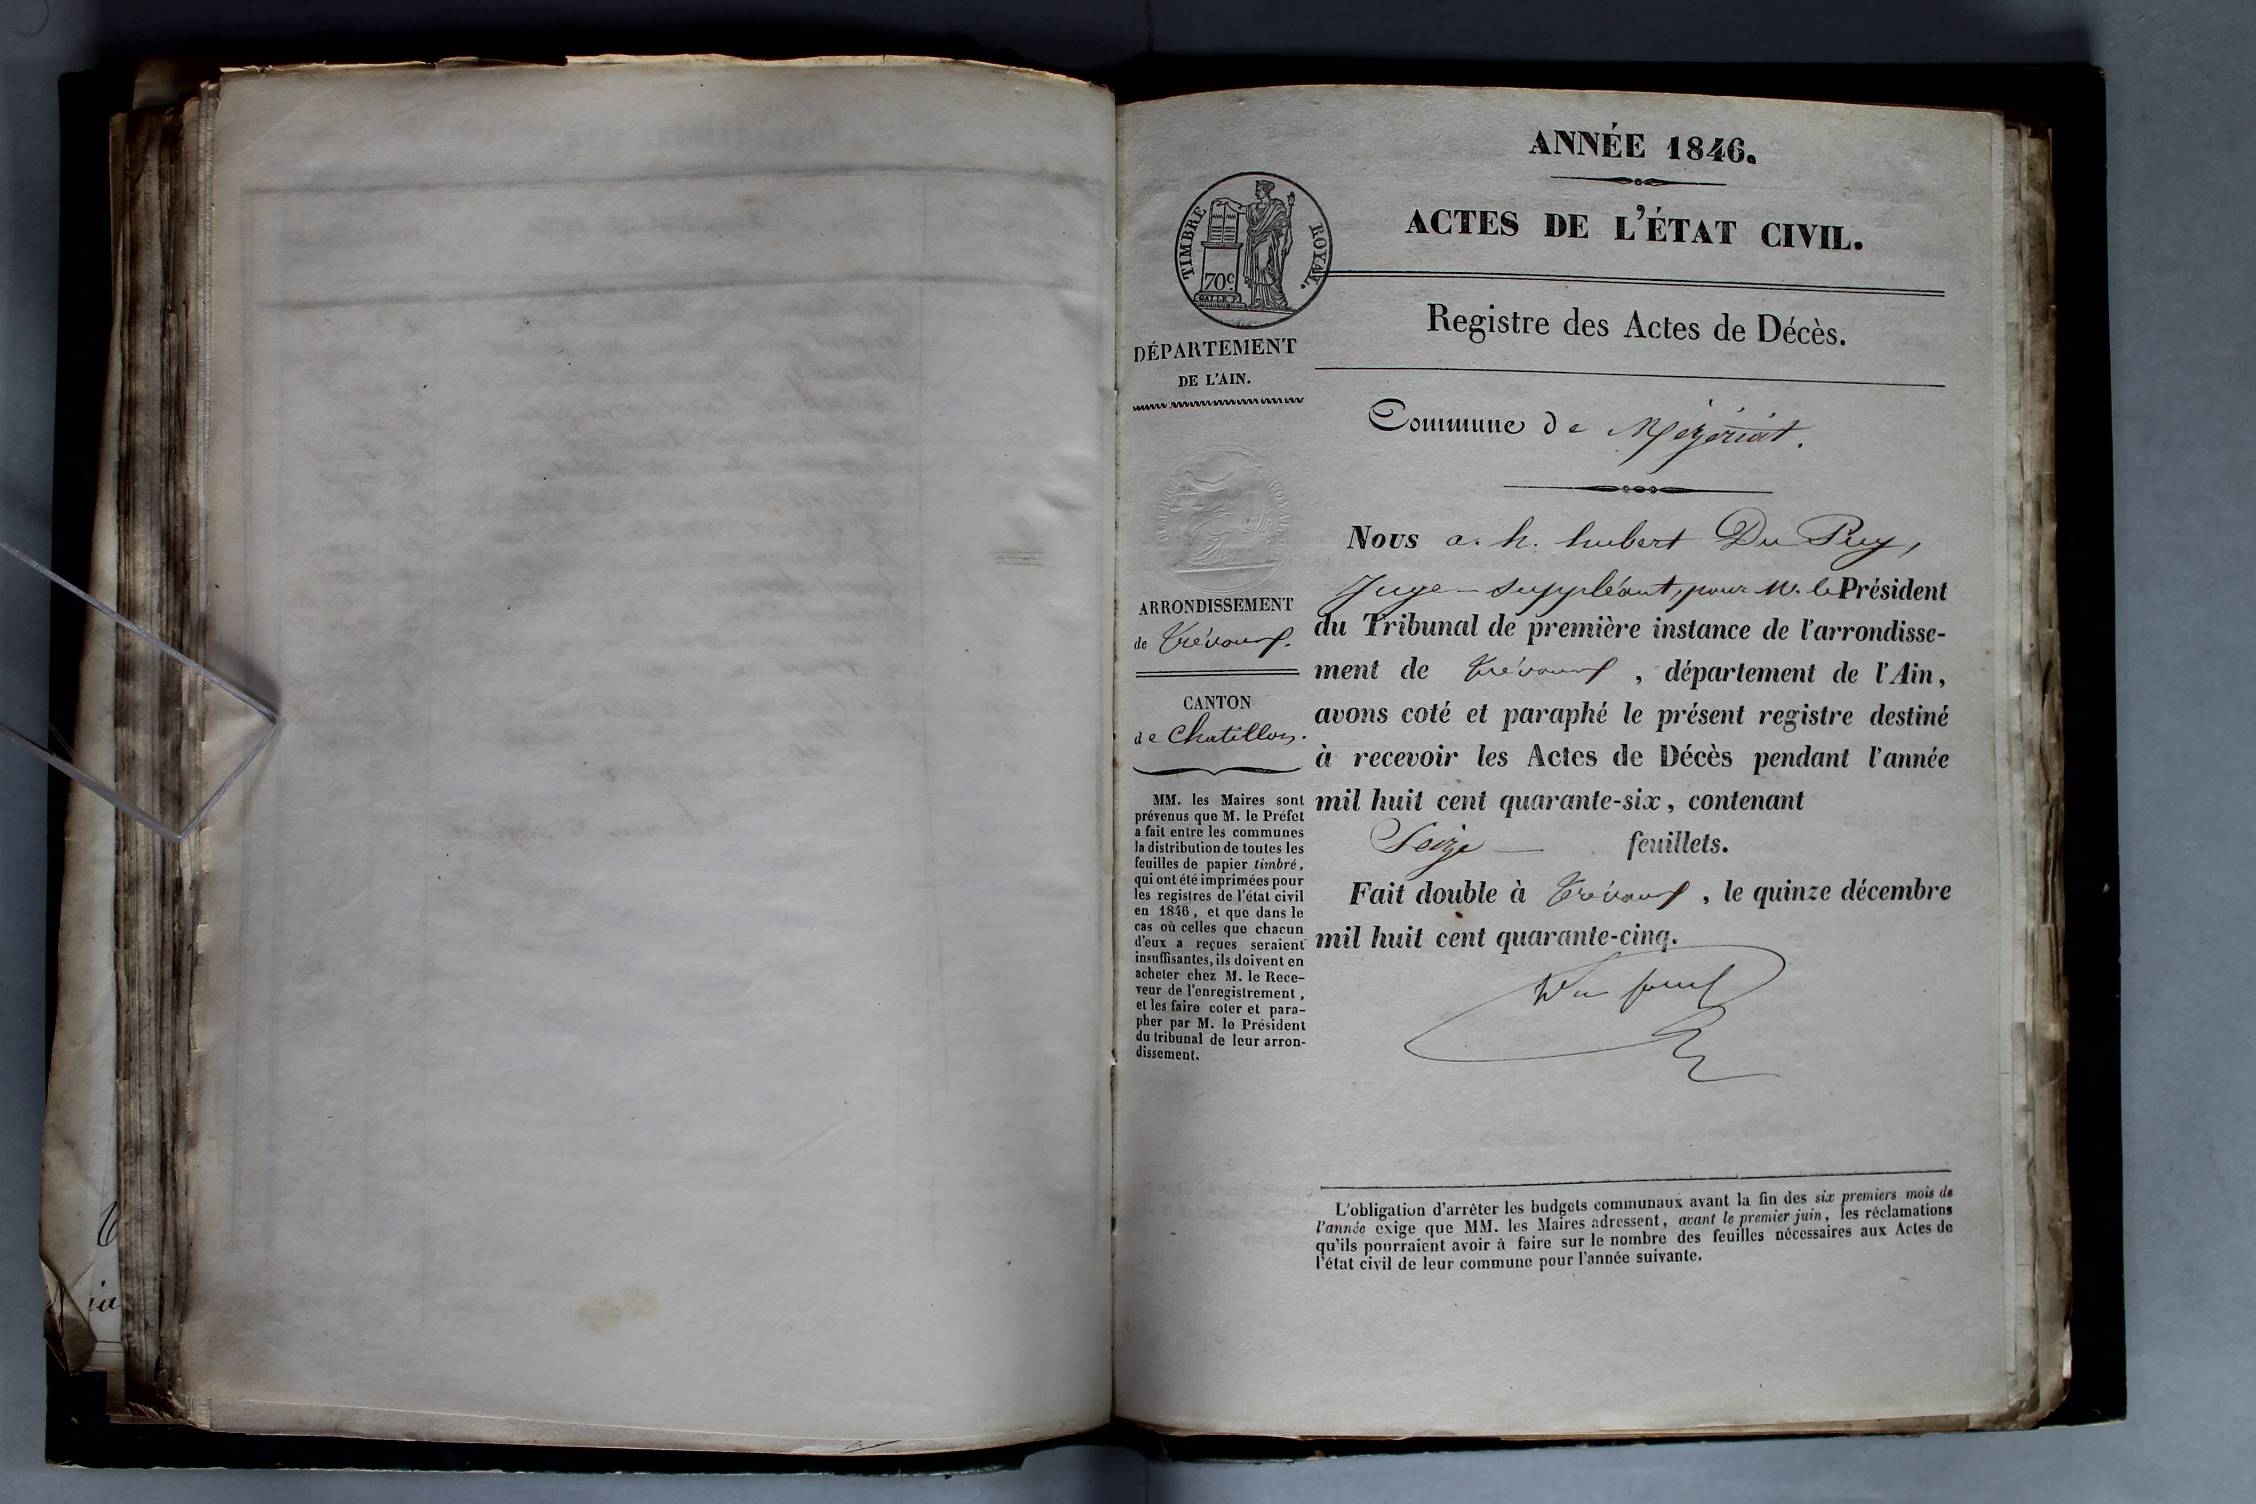 ANNÉE 1846.
ACTES DE L'ÉTAT CIVIL.
Registre des Actes de Décès.
TIMBRE ROYAL.
70c
GALLE F.
DÉPARTEMENT
DE L'AIN.
ARRONDISSEMENT
de Trévoux.
CANTON
de Chatillon.
MM. les Maires sont
prévenus que M. le Préfet
a fait entre les communes
la distribution de toutes les
feuilles de papier timbré,
qui ont été imprimées pour
les registres de l'état civil
en 1846, et que dans le
cas où celles que chacun
d'eux a reçues seraient
insuffisantes, ils doivent en
acheter chez M. le Rece-
veur de l'enregistrement,
et les faire coter et para-
pher par M. le Président
du tribunal de leur arron-
dissement.
Commune de Mézériat.
Nous a. h. hubert Du Puy,
Juge-suppléant, pour M. le Président
du Tribunal de première instance de l'arrondisse-
ment de Trévoux, département de l'Ain,
avons coté et paraphé le présent registre destiné
à recevoir les Actes de Décès pendant l'année
mil huit cent quarante-six, contenant
Seize — feuillets.
Fait double à Trévoux, le quinze décembre
mil huit cent quarante-cinq.
L'obligation d'arrêter les budgets communaux avant la fin des six premiers mois de
l'année exige que MM. les Maires adressent, avant le premier juin, les réclamations
qu'ils pourraient avoir à faire sur le nombre des feuilles nécessaires aux Actes de
l'état civil de leur commune pour l'année suivante.